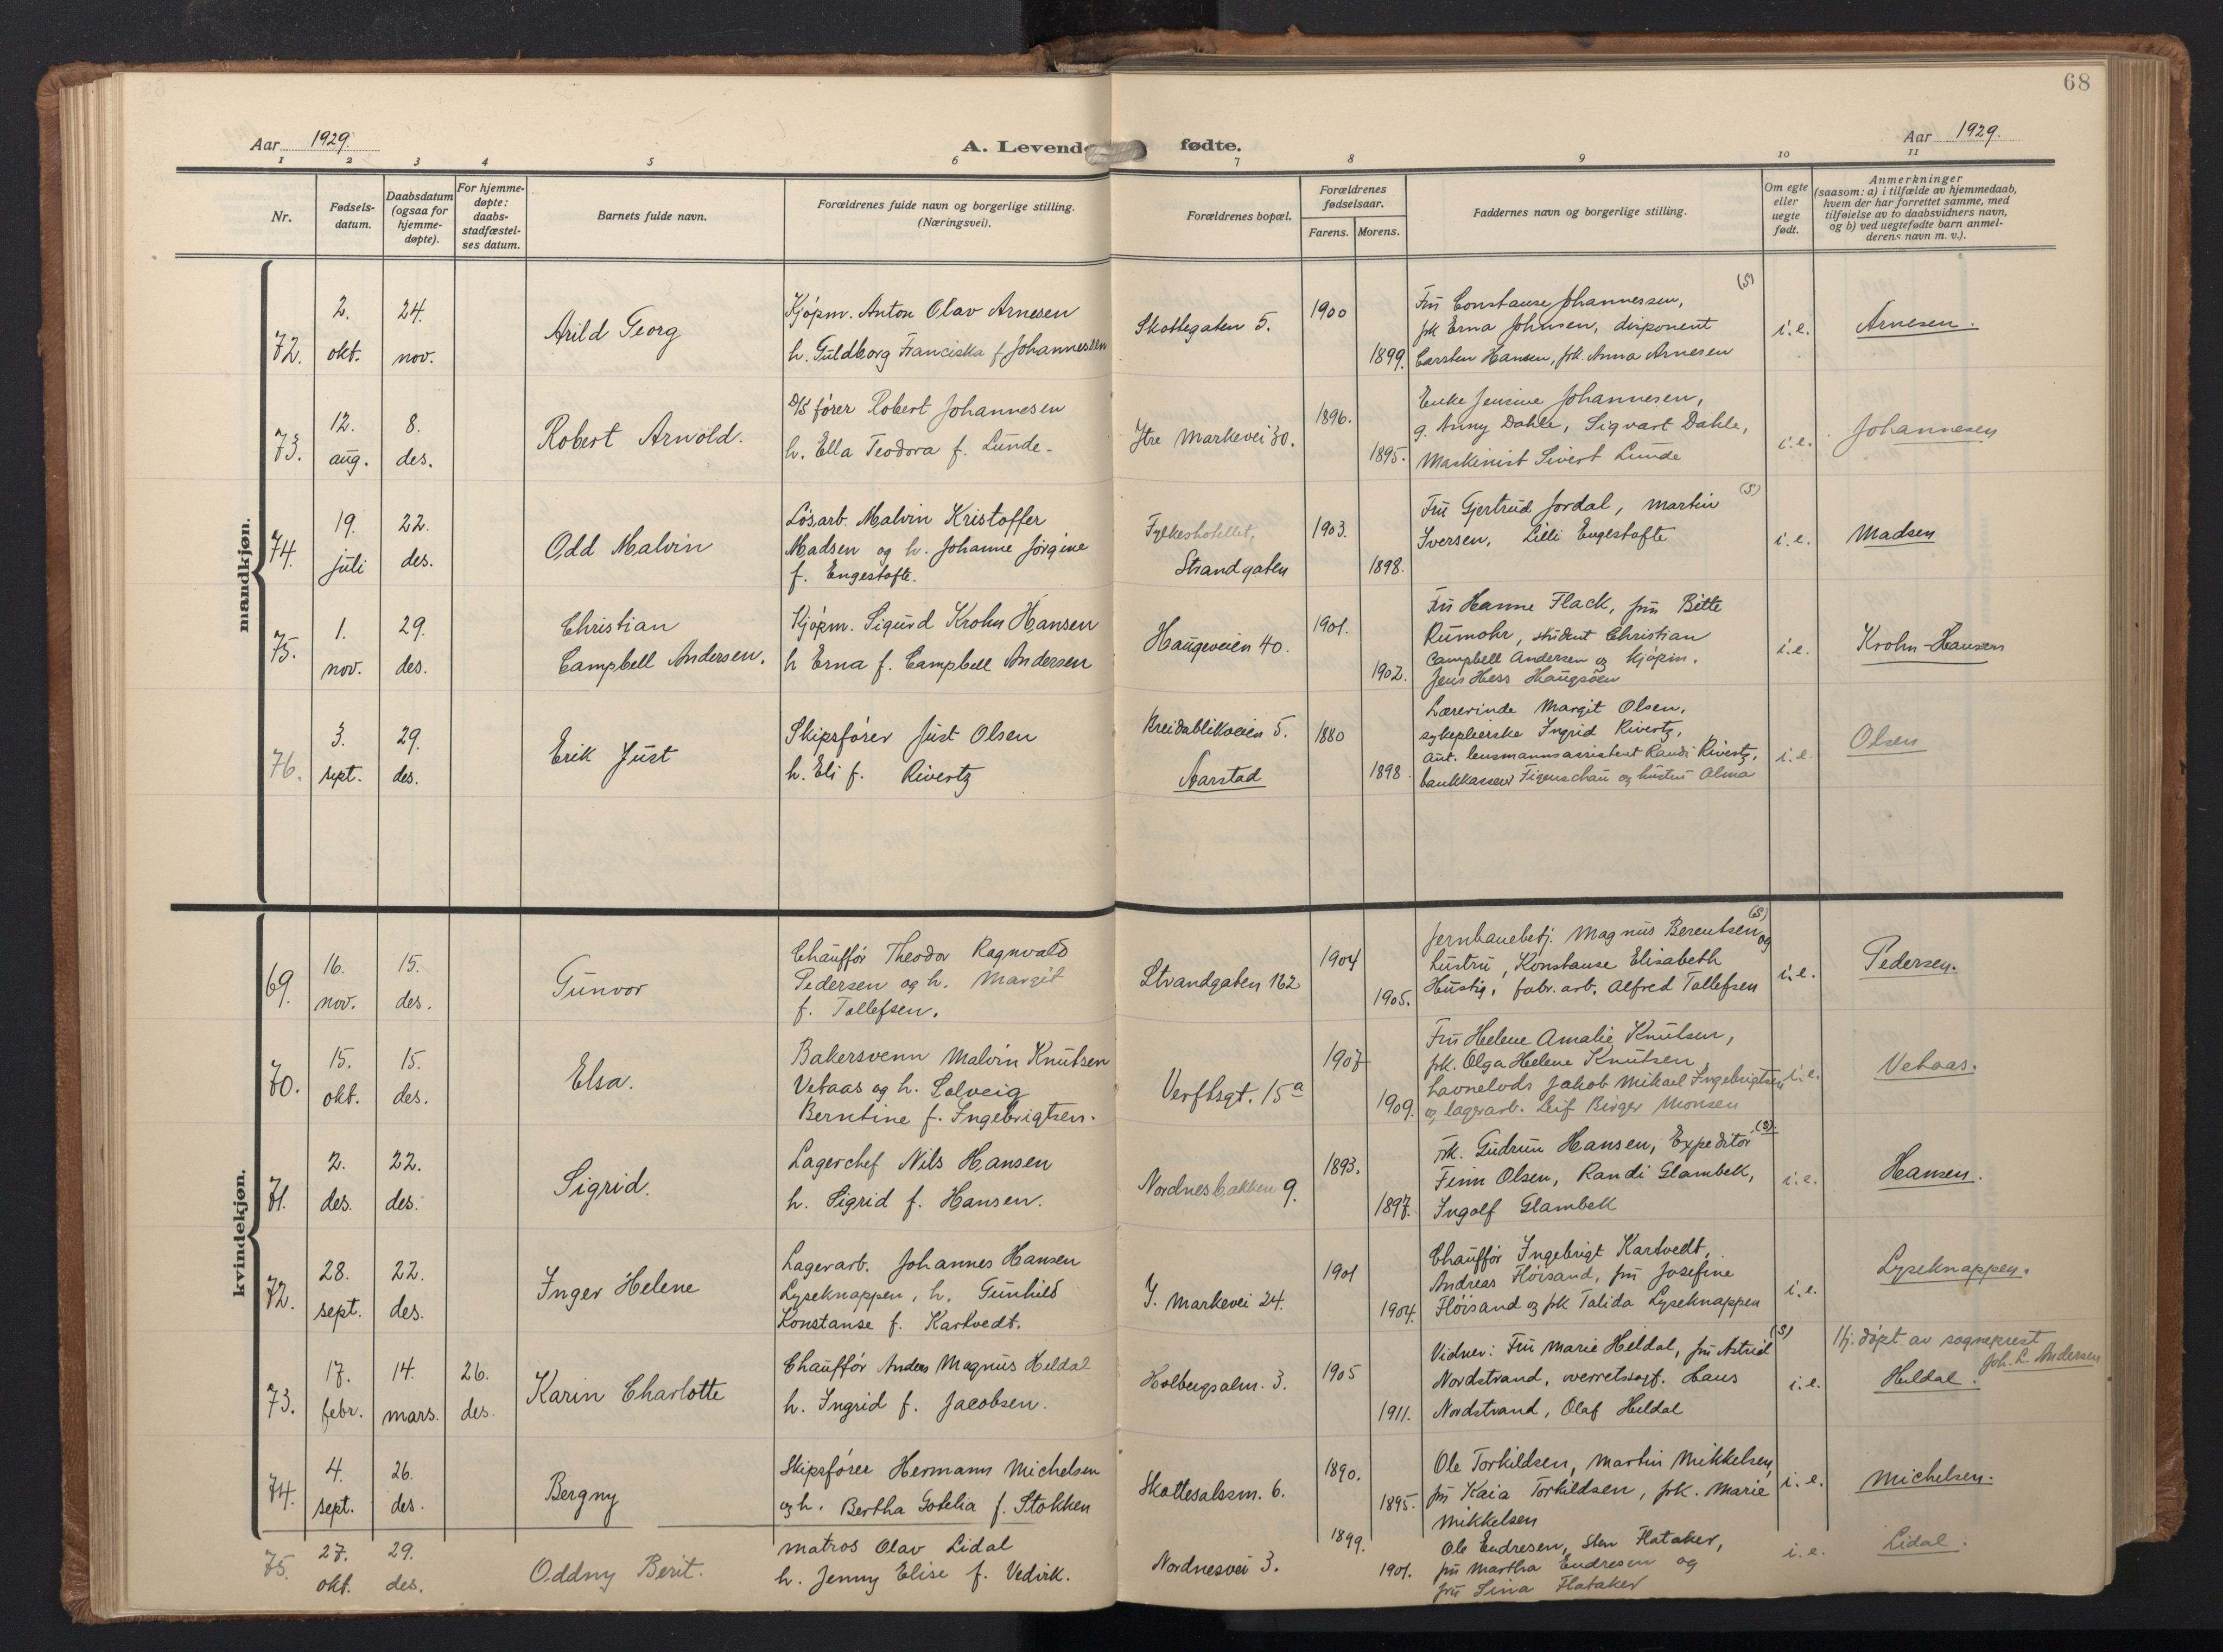 68
Aar 1929.
A. Levende fødte.
Aar 1929.
1 2 3 4 5 6 7 8 9 10 11
Nr.
Fødsels-
datum.
Daabsdatum
(ogsaa for
hjemme-
døpte).
For hjemme-
døpte:
daabs-
stadfæstel-
ses datum.
Barnets fulde navn.
Forældrenes fulde navn og borgerlige stilling.
(Næringsvei).
Forældrenes bopæl.
Forældrenes
fødselsaar.
Farens. Morens.
Faddernes navn og borgerlige stilling.
Om egte
eller
uegte
født.
Anmerkninger
(saasom: a) i tilfælde av hjemmedaab,
hvem der har forrettet samme, med
tilføielse av to daabsvidners navn,
og b) ved uegtefødte barn anmel-
derens navn m. v.).
mandkjøn.
72.
2.
okt.
24.
nov.
Arild Georg
Kjøpm. Anton Olav Arnesen
h. Guldborg Franciska f Johannessen
Skottegaten 5.
1900
1899.
(S)
Fru Constanse Johannessen,
frk Erna Johnsen, disponent
Carsten Hansen, frk. Anna Arnesen
i.e.
Arnesen.
73.
12.
aug.
8.
des.
Robert Arnold.
D/S fører Robert Johannesen
h. Ella Teodora f. Lunde.
Ytre Markevei 30.
1896.
1895.
Enke Jensine Johannesen,
g. Anny Dahle, Sigvart Dahle,
Maskinist Sivert Lunde
i.e.
Johannesen
74.
19.
juli
22.
des.
Odd Malvin
Løsarb. Malvin Kristoffer
Madsen og h. Johanne Jørgine
f. Engestofte.
Fylkeshotellet,
Strandgaten
1903.
1898.
(S)
Fru Gjertrud Jordal, Martin
Iversen, Lilli Engestofte
i.e.
Madsen
75.
1.
nov.
29.
des.
Christian
Campbell Andersen.
Kjøpm. Sigurd Krohn Hansen
h Erna f. Campbell Andersen
Haugeveien 40.
1901.
1902.
Fru Hanne Flack, fru Bitte
Rumohr, student Christian
Campbell Andersen og kjøpm.
Jens Hess Haugsøen
i.e.
Krohn-Hansen
76.
3.
sept.
29.
des.
Erik Just
Skipsfører Just Olsen
h. Eli f. Rivertz
Breidablikveien 5.
Aarstad
1880
1898.
Lærerinde Margit Olsen,
sykepleierske Ingrid Rivertz,
aut. lensmannsassistent Randi Rivertz,
bankkasserer Figenschau og hustru Alma
i.e.
Olsen
kvindekjøn.
69.
16.
nov.
15.
des.
Gunvor
Chauffør Theodor Ragnvald
Pedersen og h. Margit
f. Tollefsen.
Strandgaten 162
1904
1905.
(S)
Jernbanebetj. Magnus Berentsen og
hustru, Konstanse Elisabeth
Hustig, fabr. arb. Alfred Tollefsen
i.e.
Pedersen.
70.
15.
okt.
15.
des.
Elsa.
Bakersvenn Malvin Knutsen
Vetaas og h. Solveig
Berntine f. Ingebrigtsen.
Verftsgt. 15a
1907
1909.
Fru Helene Amalie Knutsen,
frk. Olga Helene Knutsen
havnelods Jakob Mikael Ingebrigtsen
og lagerarb. Leif Birger Monsen
i.e.
Vetaas.
71.
2.
des.
22.
des.
Sigrid.
Lagerchef Nils Hansen
h. Sigrid f. Hansen.
Nordnesbakken 9.
1893.
1897.
(S).
Frk. Gudrun Hansen, Expeditør
Finn Olsen, Randi Glambek,
Ingolf Glambek
i.e.
Hansen.
72.
28.
sept.
22.
des.
Inger Helene
Lagerarb. Johannes Hansen
Lyseknappen, h. Gunhild
Konstanse f. Kartvedt.
Y. Markevei 24.
1901
1904.
Chauffør Ingebrigt Kartvedt,
Andreas Fløisand, fru Josefine
Fløisand og frk Talida Lyseknappen
i.e.
Lyseknappen.
73.
17.
febr.
14.
mars.
26.
des.
Karin Charlotte
Chauffør Anders Magnus Heldal
h. Ingrid f. Jacobsen.
Holbergsalm. 3.
1905
1911.
(S)
Vidner: Fru Marie Heldal, fru Astrid
Nordstrand, overretssagf. Hans
Nordstrand, Olaf Heldal
i.e.
Hj. døpt av sogneprest
Joh. L. Andersen
Heldal.
74.
4.
sept.
26.
des.
Bergny
Skipsfører Hermann Michelsen
og h. Bertha Gotelia f. Stokken
Skottesalssm. 6.
1890.
1895.
Ole Torkildsen, Martin Mikkelsen,
fru Kaia Torkildsen, frk. Marie
Mikkelsen
i.e.
Michelsen.
75.
27.
okt.
29.
des.
Oddny Berit.
Matros Olav Lidal
h. Jenny Elise f. Vedvik.
Nordnesvei 3.
1899.
1901.
Ole Endresen, Sten Flataker,
fru Martha Endresen og
fru Sina Flataker
i.e.
Lidal.